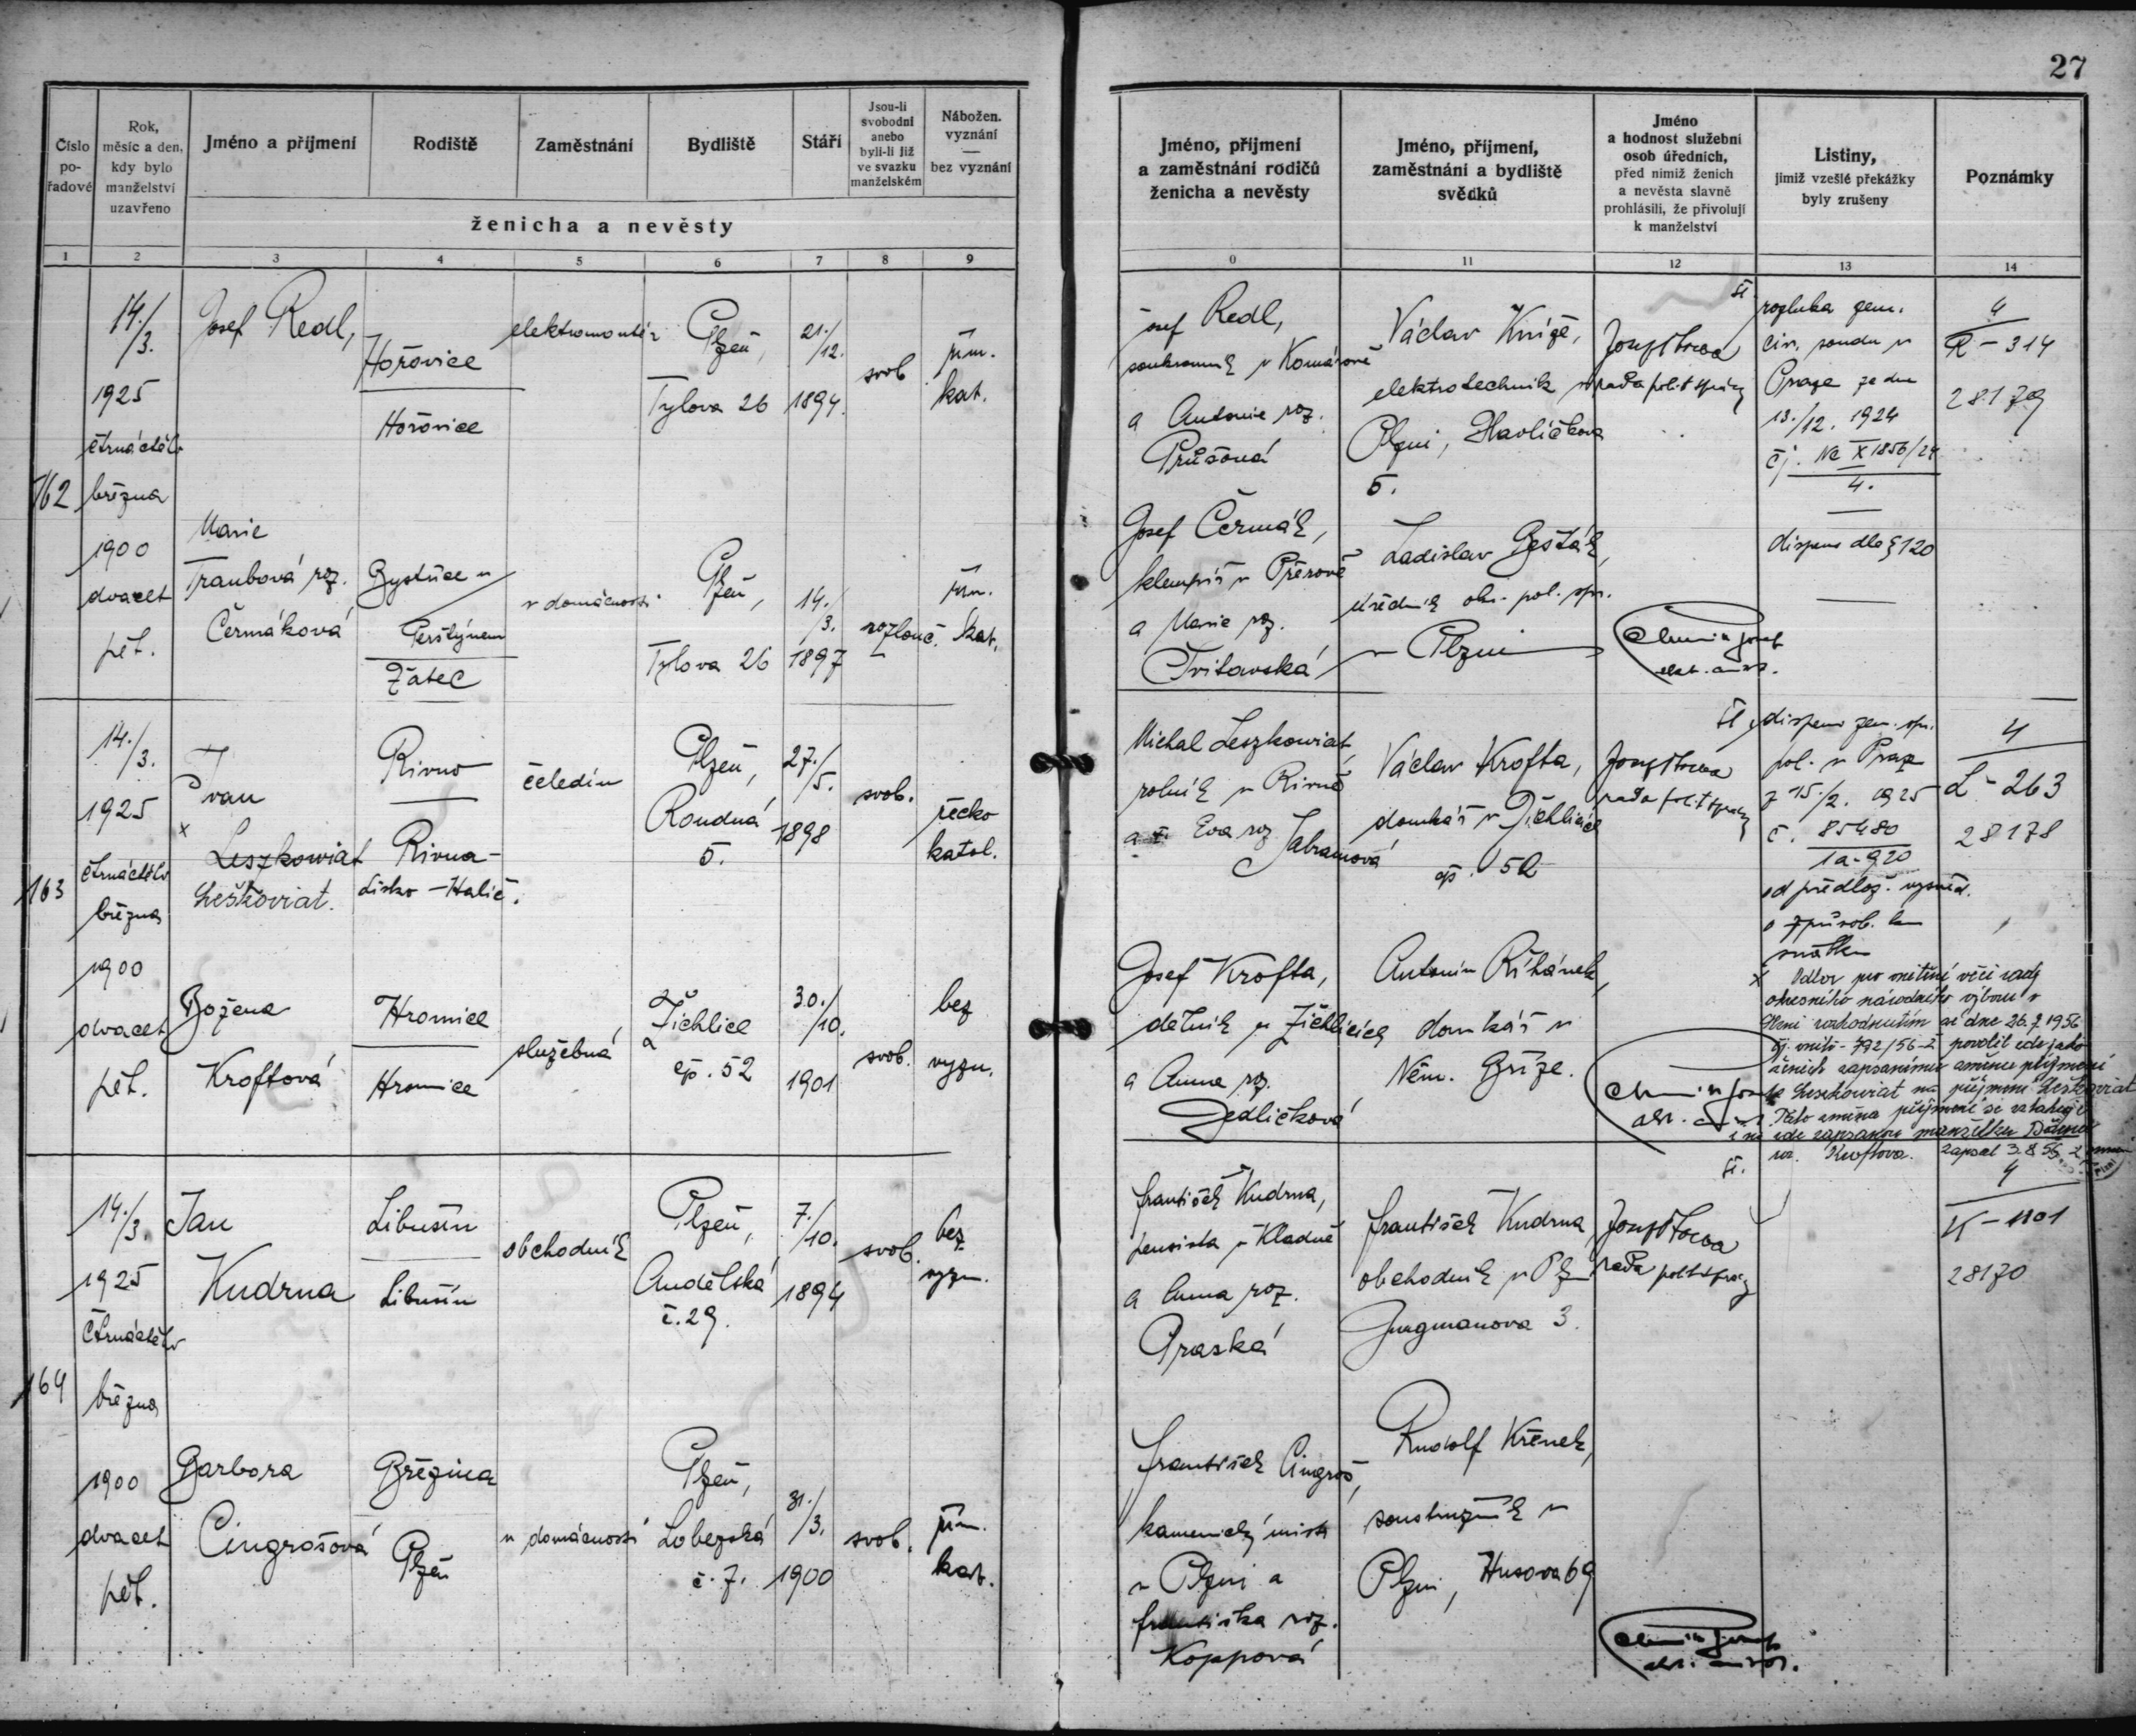 27
Číslo po-řadové
Rok, měsíc a den, kdy bylo manželství uzavřeno
Jméno a příjmení
Rodiště
Zaměstnání
Bydliště
Stáří
Jsou-li svobodni anebo byli-li již ve svazku manželském
Nábožen. vyznání — bez vyznání
ženicha a nevěsty
Jméno, příjmení a zaměstnání rodičů ženicha a nevěsty
Jméno, příjmení, zaměstnání a bydliště svědků
Jméno a hodnost služební osob úředních, před nimiž ženich a nevěsta slavně prohlásili, že přivolují k manželství
Listiny, jimiž vzešlé překážky byly zrušeny
Poznámky
1 2 3 4 5 6 7 8 9
0 11 12 13 14
162
14./3.
1925
čtrnáctého
března
1900
dvacet
pět.
Josef Redl,
Hořovice
Hořovice
elektromontér
Plzeň,
Tylova 26
21./12.
1894.
svob
řím.
kat.
Josef Redl,
soukromník v Komárově
a Antonie roz.
Průšová
Václav Kníže,
elektrotechnik v
Plzni, Havlíčkova
5.
rada polit správy
rozluka zem.
civ. soudu v
Praze ze dne
13./12. 1924
čj. Nc X 1856/24
4.
dispens dle § 120
4
R - 314
28179
Marie
Traubová roz.
Čermáková
Bystřice n/
Perštýnem
Žatec
v domácnosti
Plzeň,
Tylova 26
14./3.
1897
rozlouč.
řím.
kat.
Josef Čermák,
klempíř v Přerově
a Marie roz.
Tvitavská
Ladislav Gešták,
úředník okr. pol. spr.
v Plzni
163
14./3.
1925
čtrnáctého
března
1900
dvacet
pět.
Ivan
x
Leszkowiat
Leškoviat.
Rivno
Rivna-
Lisko - Halič.
čeledín
Plzeň,
Roudná
5.
27./5.
1898
svob.
řecko
katol.
Michal Leszkowiat,
rolník v Rivně
a Eva roz
Jabramová
Václav Krofta,
domkář v Žichlicích
čp. 52
rada polit správy
dispens zem. spr.
pol. v Praze
z 15./2. 1925
č. 85480
1a-920
od předlož. vysvěd.
o způsob. ke
sňatku
4
L - 263
28178
x Odbor pro vnitřní věci rady
okresního národního výboru v
Plzni rozhodnutím ze dne 26.7.1956
čj. vnitř - 792/56-2 povolil zde jako
ženich zapsanému změnu příjmení
Leszkowiat na příjmení Leškoviat
Tato změna příjmení se vztahuje
i na zde zapsanou manželku Boženu
roz. Kroftovou. Zapsal 3.8.56
Božena
Kroftová
Hromice
Hromice
služebná
Žichlice
čp. 52
30./10.
1901
svob.
bez
vyzn.
Josef Krofta,
dělník v Žichlicích
a Anna roz.
Jedličková
Antonín Říhánek,
domkář v
Něm. Bříze.
164
14./3.
1925
čtrnáctého
března
1900
dvacet
pět.
Jan
Kudrna
Libušín
Libušín
obchodník
Plzeň,
Andělská
č. 29.
7./10.
1894
svob.
bez
vyzn.
František Kudrna,
pensista v Kladně
a Anna roz.
Praská
František Kudrna
obchodník v Plzni
Jungmanova 3.
rada polit správy
4
K - 1101
28170
Barbora
Cingrošová
Březina
Plzeň
v domácnosti
Plzeň,
Lobezská
č. 7.
31./3.
1900
svob.
řím.
kat.
František Cingroš,
kamenický mistr
v Plzni a
Františka roz.
Koppová
Rudolf Křenek,
soustružník v
Plzni, Husova 69